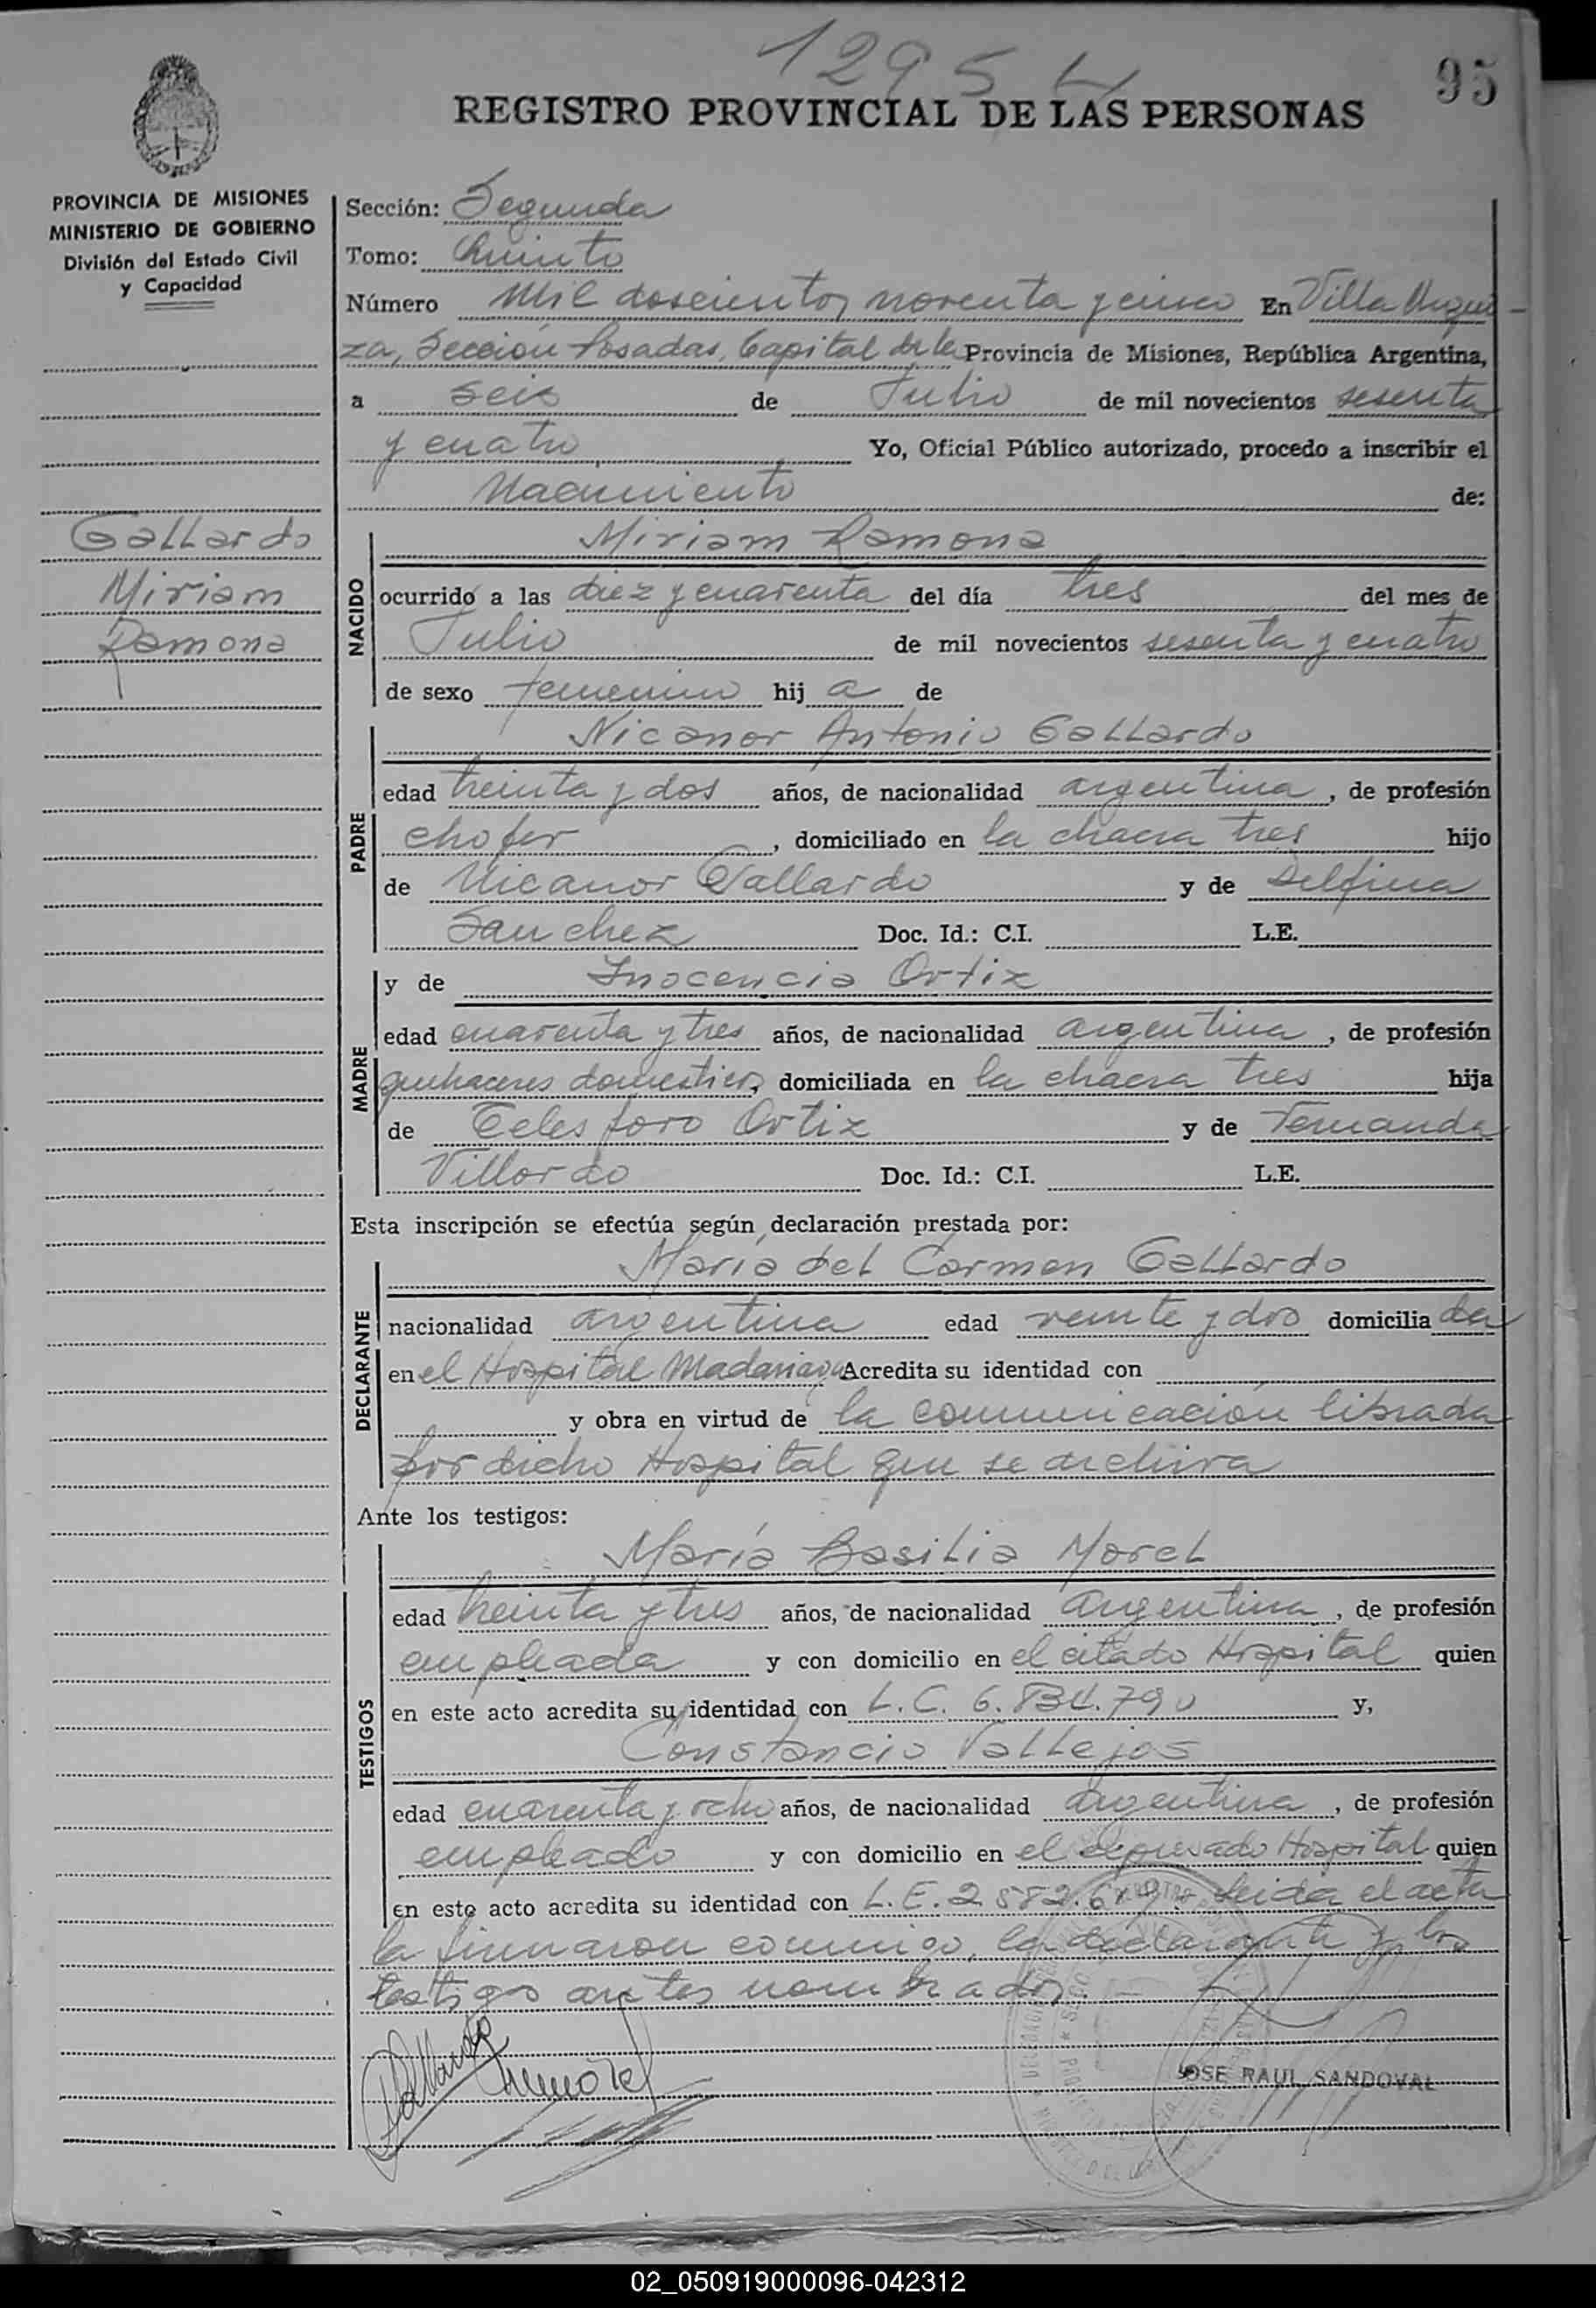 1295 L
95
REGISTRO PROVINCIAL DE LAS PERSONAS
PROVINCIA DE MISIONES
MINISTERIO DE GOBIERNO
División del Estado Civil
y Capacidad
Gallardo
Miriam
Ramona
Sección: Segunda
Tomo: Quinto
Número Mil doscientos noventa y cinco En Villa Urqui-
za, Sección Posadas, Capital de la Provincia de Misiones, República Argentina,
a seis de Julio de mil novecientos sesenta
y cuatro Yo, Oficial Público autorizado, procedo a inscribir el
Nacimiento de:
NACIDO
Miriam Ramona
ocurrido a las diez y cuarenta del día tres del mes de
Julio de mil novecientos sesenta y cuatro
de sexo femenino hij a de
PADRE
Nicanor Antonio Gallardo
edad treinta y dos años, de nacionalidad argentina, de profesión
chofer, domiciliado en la chacra tres hijo
de Nicanor Gallardo y de Delfina
Sanchez Doc. Id.: C.I. L.E.
MADRE
y de Inocencia Ortiz
edad cuarenta y tres años, de nacionalidad argentina, de profesión
quehaceres domesticos, domiciliada en la chacra tres hija
de Telesforo Ortiz y de Fernanda
Villordo Doc. Id.: C.I. L.E.
Esta inscripción se efectúa según declaración prestada por:
DECLARANTE
María del Carmen Gallardo
nacionalidad argentina edad veinte y dos domicilia da
en el Hospital Madariaga Acredita su identidad con
y obra en virtud de la comunicación librada
por dicho Hospital que se archiva
Ante los testigos:
TESTIGOS
María Basilia Morel
edad treinta y tres años, de nacionalidad argentina, de profesión
empleada y con domicilio en el citado Hospital quien
en este acto acredita su identidad con L.C. 6.834.790 y,
Constancio Vallejos
edad cuarenta y ocho años, de nacionalidad argentina, de profesión
empleado y con domicilio en el expresado Hospital quien
en este acto acredita su identidad con L.E. 2.582. Leida el acta
la firmaron conmigo, la declarante y los
testigos antes nombrados.
Gallardo
JOSE RAUL SANDOVAL
02_050919000096-042312